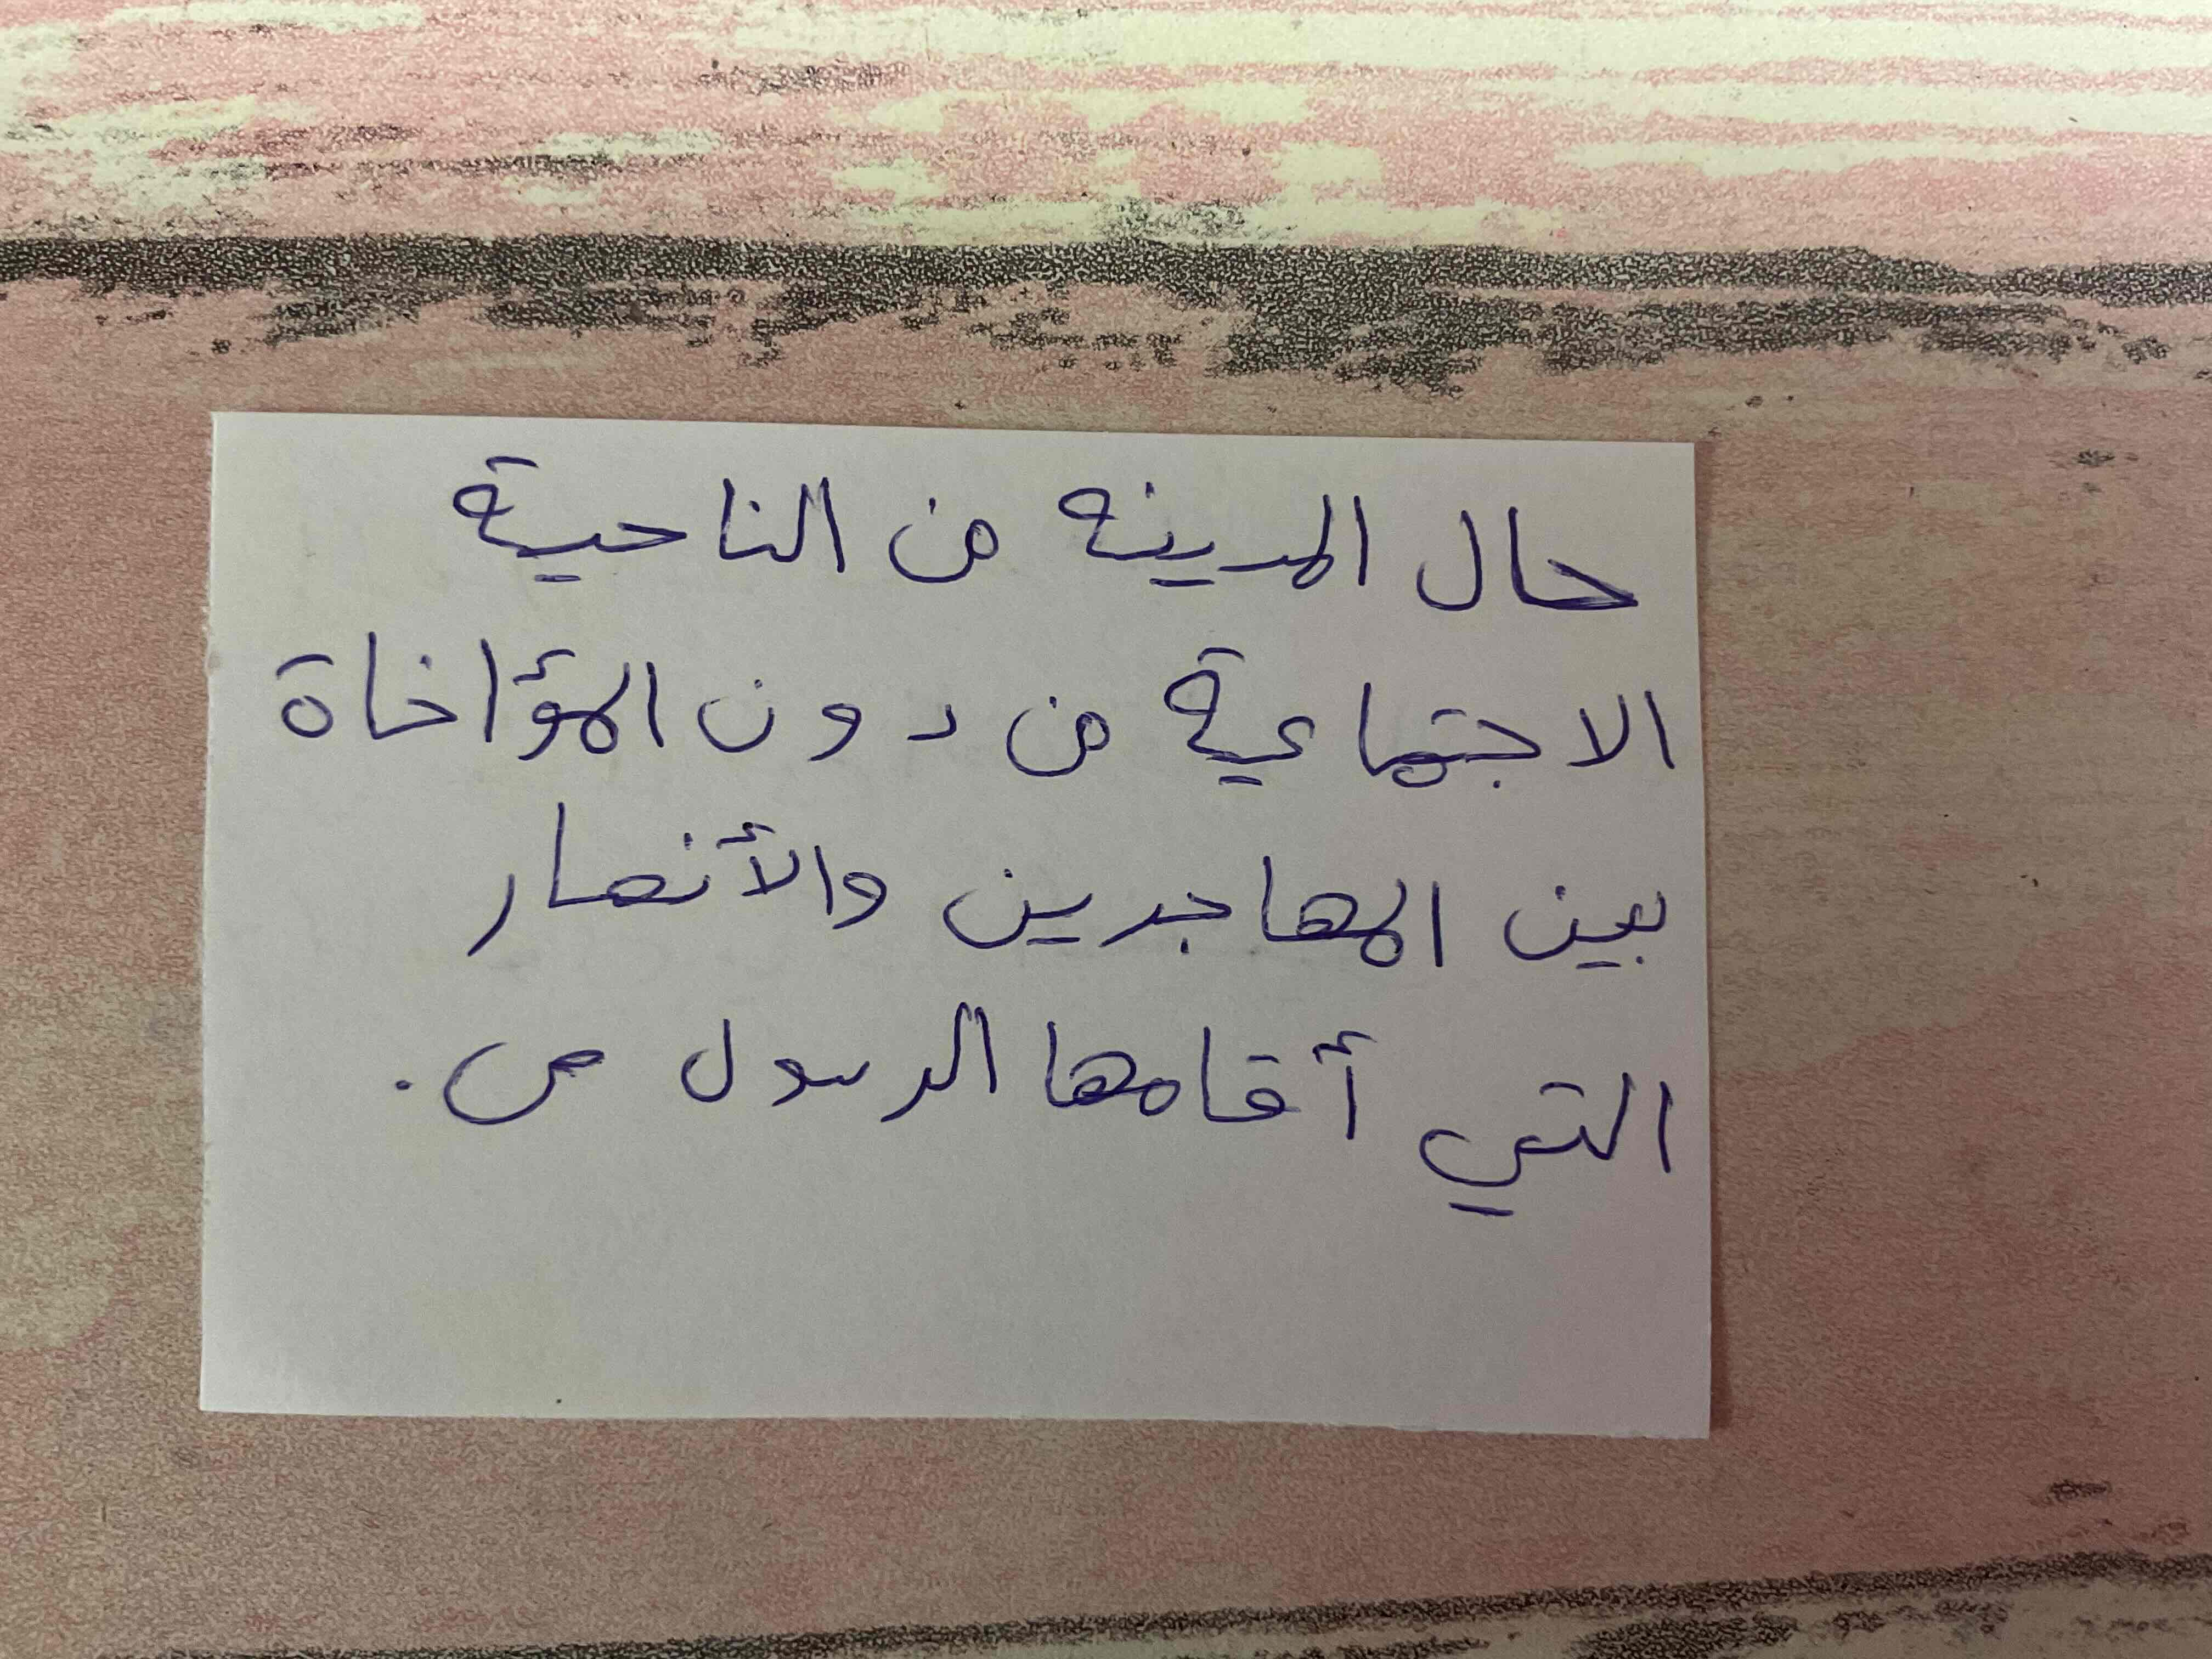 حال المدينه من الناحية
الاجتماعية من دون المؤاخاة
بين المهاجرين والأنصار
التي أقامها الرسول ص.